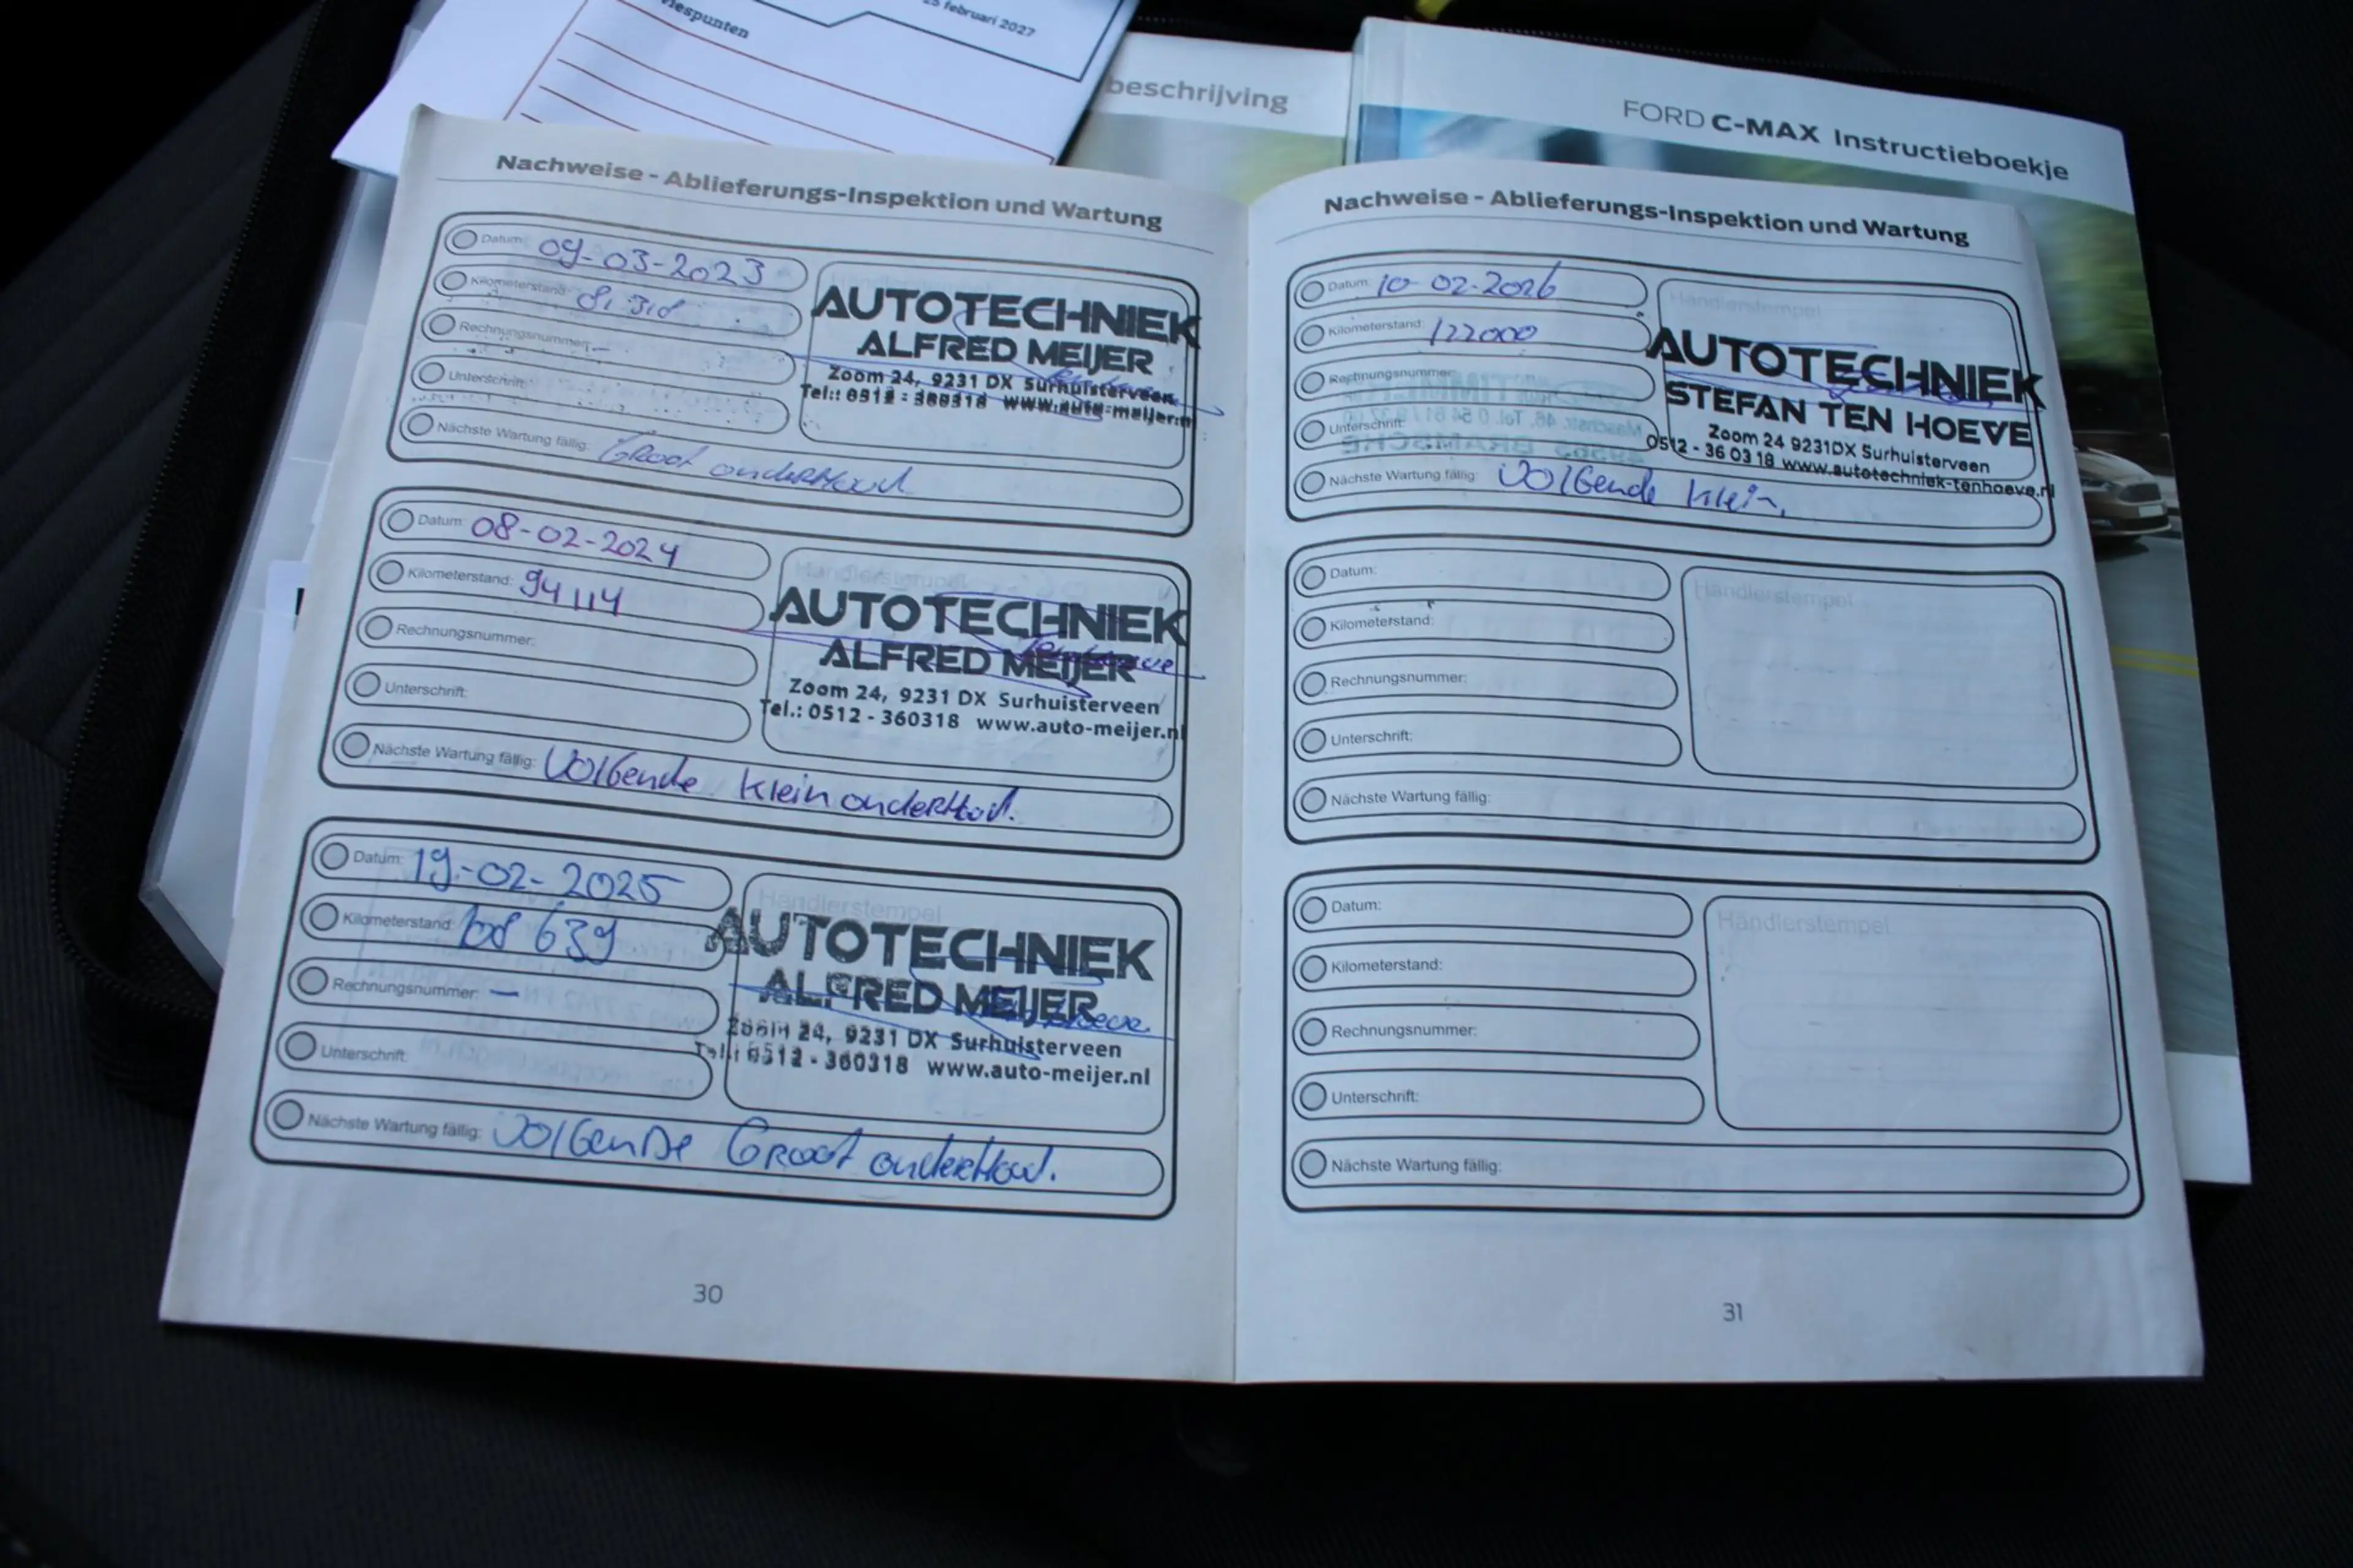 25 februari 2027
beschrijving
FORD C-MAX Instructieboekje
Nachweise - Ablieferungs-Inspektion und Wartung
Datum: 09-03-2023
Kilometerstand: 81.318
Rechnungsnummer: —
Unterschrift:
Nächste Wartung fällig: Groot onderHoud
AUTOTECHNIEK
ALFRED MEIJER
Zoom 24, 9231 DX Surhuisterveen
Tel.: 0512 - 360318 www.auto-meijer.nl
Datum: 08-02-2024
Kilometerstand: 94114
Rechnungsnummer:
Unterschrift:
Nächste Wartung fällig: Volgende klein onderHoud.
Händlerstempel
AUTOTECHNIEK
ALFRED MEIJER
Zoom 24, 9231 DX Surhuisterveen
Tel.: 0512 - 360318 www.auto-meijer.nl
Datum: 19-02-2025
Kilometerstand: 108 639
Rechnungsnummer: —
Unterschrift:
Nächste Wartung fällig: Volgende Groot onderHoud.
Händlerstempel
AUTOTECHNIEK
ALFRED MEIJER
Zoom 24, 9231 DX Surhuisterveen
Tel.: 0512 - 360318 www.auto-meijer.nl
30
Nachweise - Ablieferungs-Inspektion und Wartung
Datum: 10-02-2026
Kilometerstand: 122000
Rechnungsnummer:
Unterschrift:
Nächste Wartung fällig: Volgende klein,
Händlerstempel
AUTOTECHNIEK
STEFAN TEN HOEVE
Zoom 24 9231DX Surhuisterveen
0512 - 36 03 18 www.autotechniek-tenhoeve.nl
Datum:
Kilometerstand:
Rechnungsnummer:
Unterschrift:
Nächste Wartung fällig:
Händlerstempel
Datum:
Kilometerstand:
Rechnungsnummer:
Unterschrift:
Nächste Wartung fällig:
Händlerstempel
31